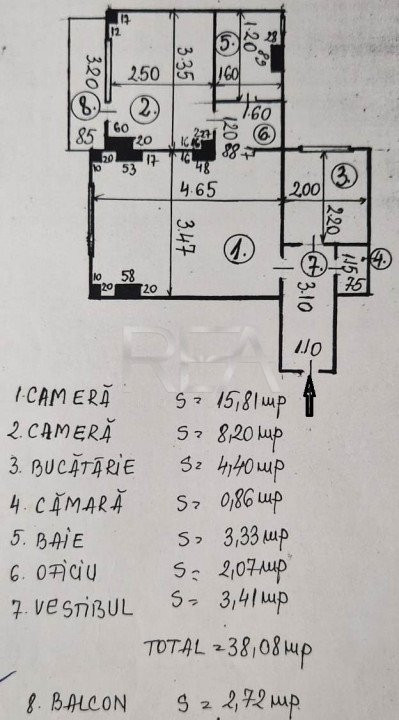 17
12
3.20
250
3.35
5.
1.20
28
89
160
8.
2.
85
60
20
16
16
227
1.20
1.60
6.
88
10
20
53
17
48
4.65
200
3.
2.20
3.47
1.
7.
1.15
4.
75
3.10
10
20
58
20
1.10
REA
1. CAMERĂ S = 15,81 mp
2. CAMERĂ S = 8,20 mp
3. BUCĂTĂRIE S = 4,40 mp
4. CĂMARĂ S = 0,86 mp
5. BAIE S = 3,33 mp
6. OFICIU S = 2,07 mp
7. VESTIBUL S = 3,41 mp
TOTAL = 38,08 mp
8. BALCON S = 2,72 mp